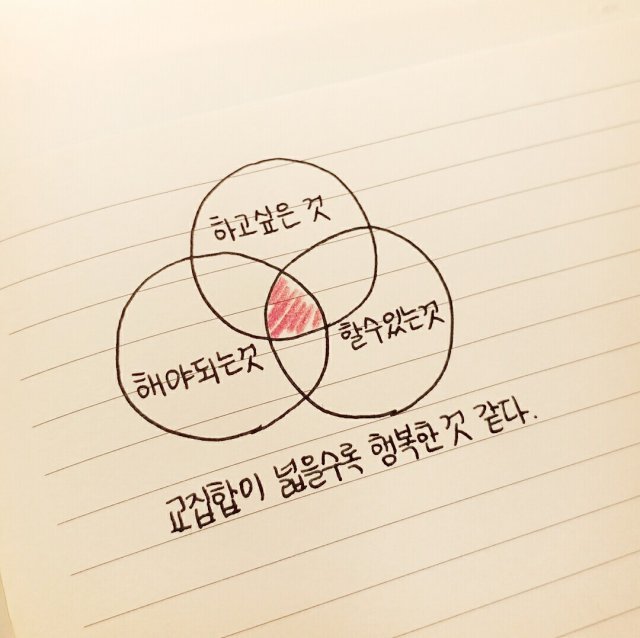 하고싶은 것
해야되는것
할수있는것
교집합이 넓을수록 행복한것 같다.